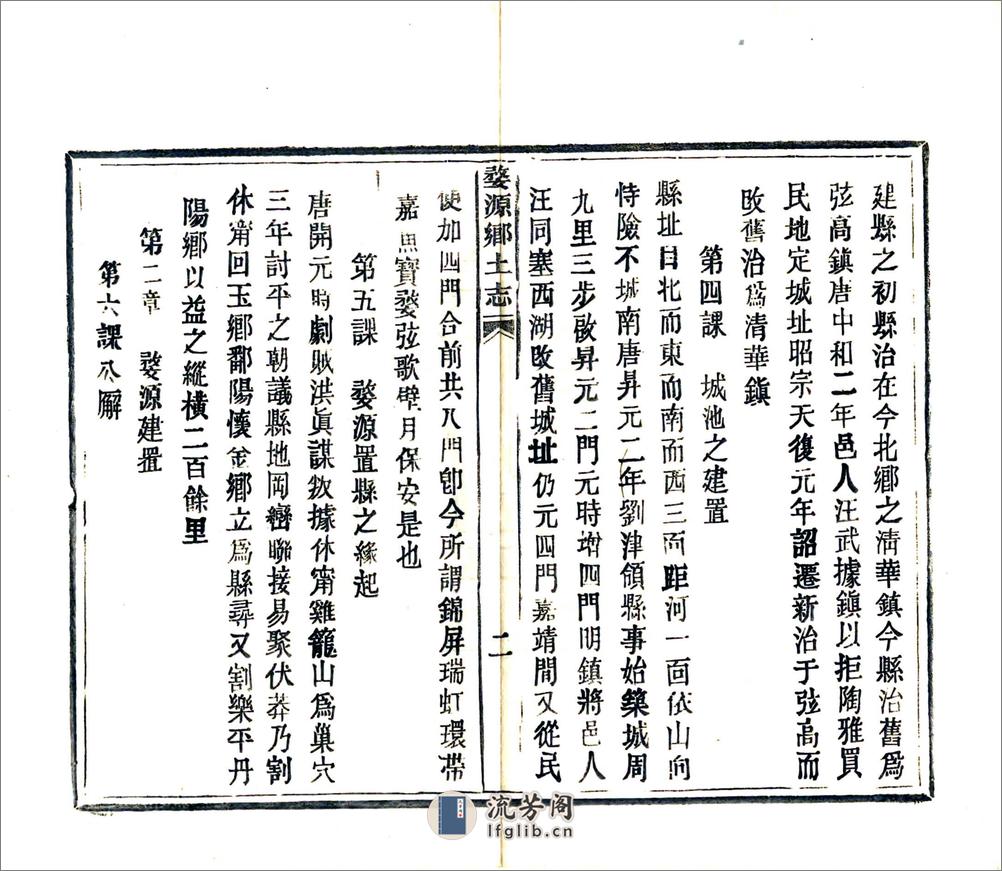 建縣之初縣治在今北鄉之清華鎮今縣治舊爲
弦高鎮唐中和二年邑人汪武據鎮以拒陶雅買
民地定城址昭宗天復元年詔遷新治于弦高而
改舊治爲清華鎮
第四課 城池之建置
縣址自北而東而南而西三面距河一面依山向
恃險不城南唐昇元二年劉津領縣事始築城周
九里三步啟昇元二門元時增四門明鎮將邑人
汪同塞西湖改舊城址仍元四門嘉靖間又從民
婺源鄉土志
二
便加四門合前共八門卽今所謂錦屏瑞虹環帶
嘉魚寶婺弦歌璧月保安是也
第五課 婺源置縣之緣起
唐開元時劇賊洪眞謀叛據休甯雞籠山爲巢穴
三年討平之朝議縣地岡巒聯接易聚伏莽乃割
休甯回玉鄉鄱陽懷金鄉立爲縣尋又割樂平丹
陽鄉以益之縱橫二百餘里
第二章 婺源建置
第六課 公廨
流芳阁
lfglib.cn